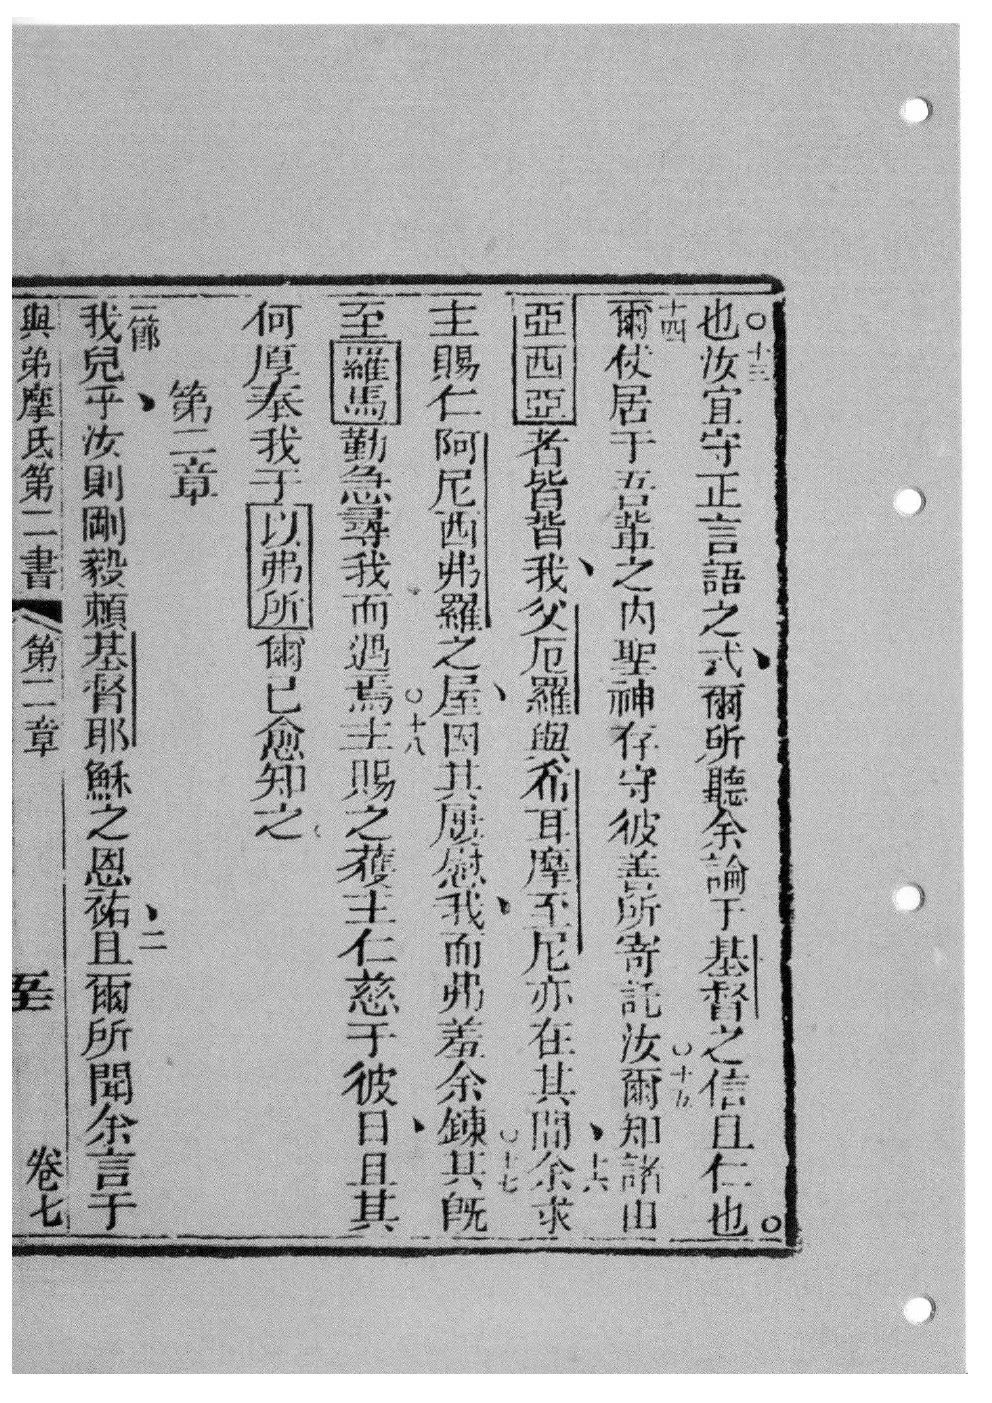 也○十三汝宜守正言語之式爾所聽余論于基督之信且仁也○
十四爾仗居于吾輩之內聖神存守彼善所寄託汝○十五爾知諸由
亞西亞者皆背我父厄羅與希耳摩至尼亦在其間十六余求
主賜仁阿尼西弗羅之屋因其屢慰我而弗羞余鍊○十七其既
至羅馬勤急尋我而遇焉○十八主賜之獲主仁慈于彼日且其
何厚奉我于以弗所爾已愈知之
第二章
一節我兒乎汝則剛毅頼基督耶穌之恩祐二且爾所聞余言于
與弟摩氏第二書 第二章 卷七